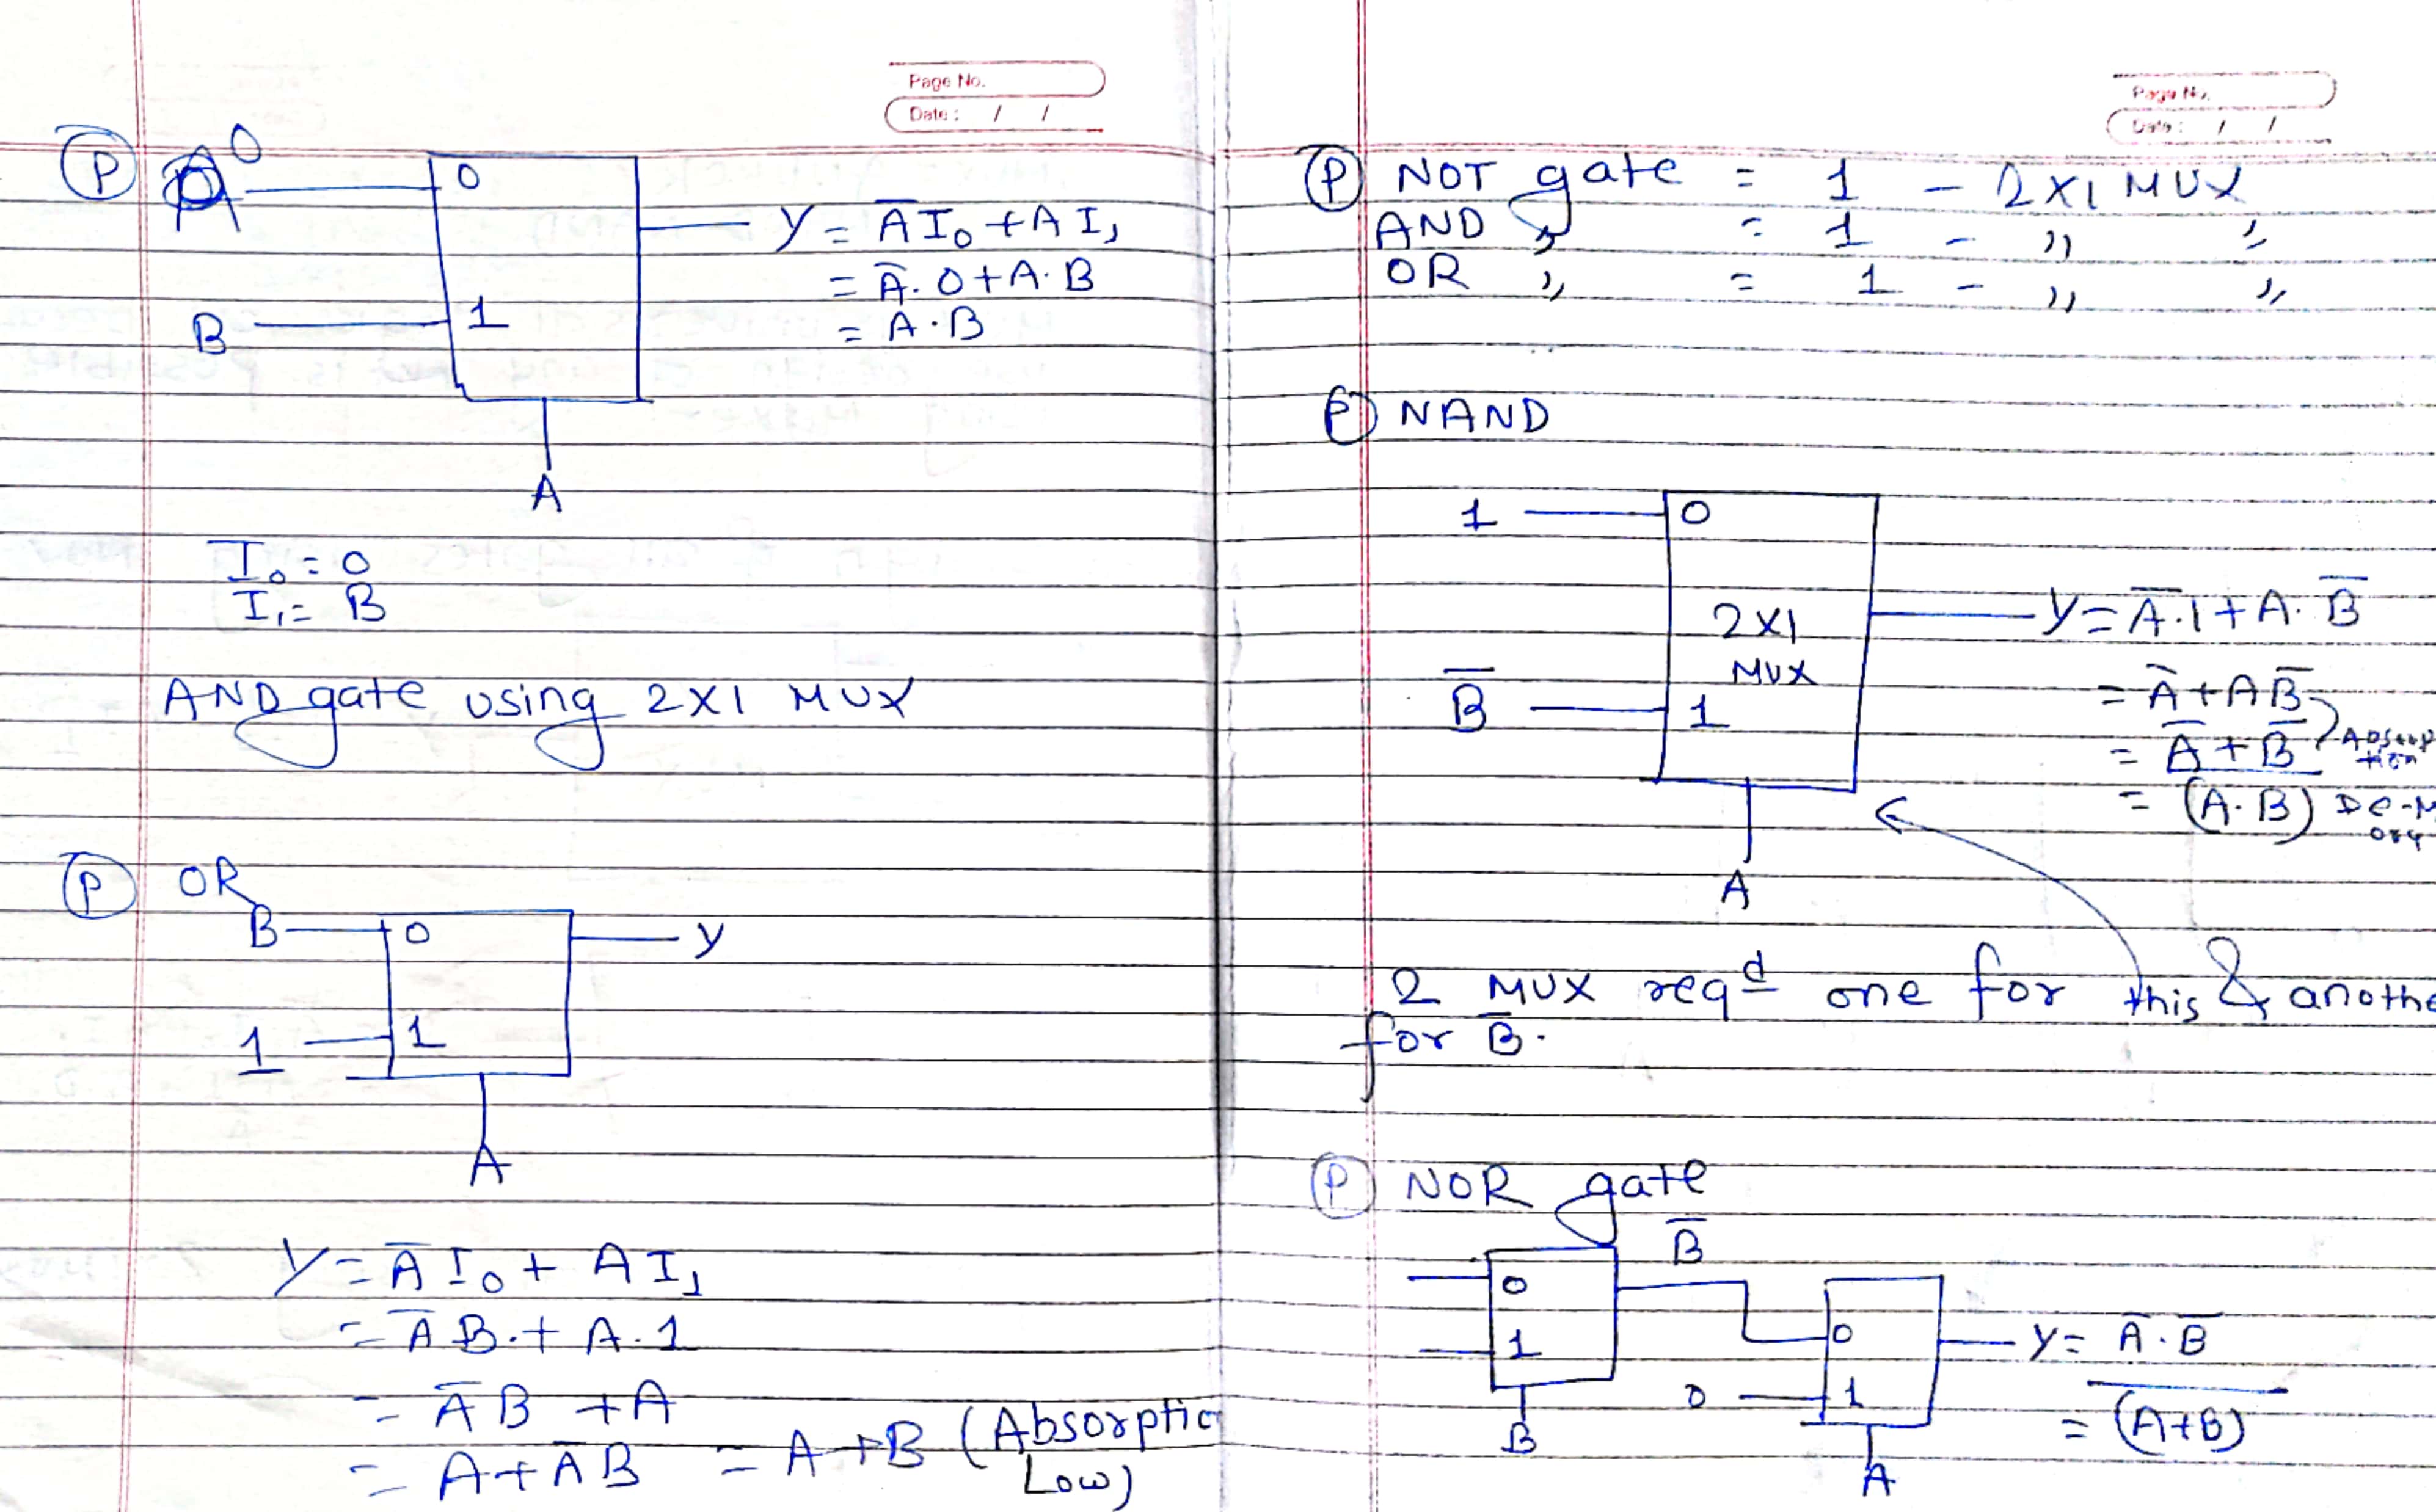 Page No.
Date : / /
(P) 0
0 0
Y = A̅ I₀ + A I₁
= A̅ . 0 + A . B
B 1
= A . B
A
I₀ = 0
I₁ = B
AND gate using 2X1 MUX
(P) OR
B 0 Y
1 1
A
Y = A̅ I₀ + A I₁
= A̅ B . + A . 1
= A̅ B + A
= A + A̅ B = A + B (Absorptio
Low)
Page No.
Date : / /
(P) NOT gate = 1 - 2X1 MUX
AND ,, = 1 - ,, ,,
OR ,, = 1 - ,, ,,
(P) NAND
1 0
2X1
MUX
Y = A̅ . 1 + A . B̅
B̅ 1
= A̅ + A B̅
= A̅ + B̅ Absorp
tion
= (A . B)̅ De-M
org
A
2 MUX reqd one for this & anothe
for B̅ .
(P) NOR gate
B̅
0
1
B
0
0 1
A
Y = A̅ . B̅
= (A+B)̅